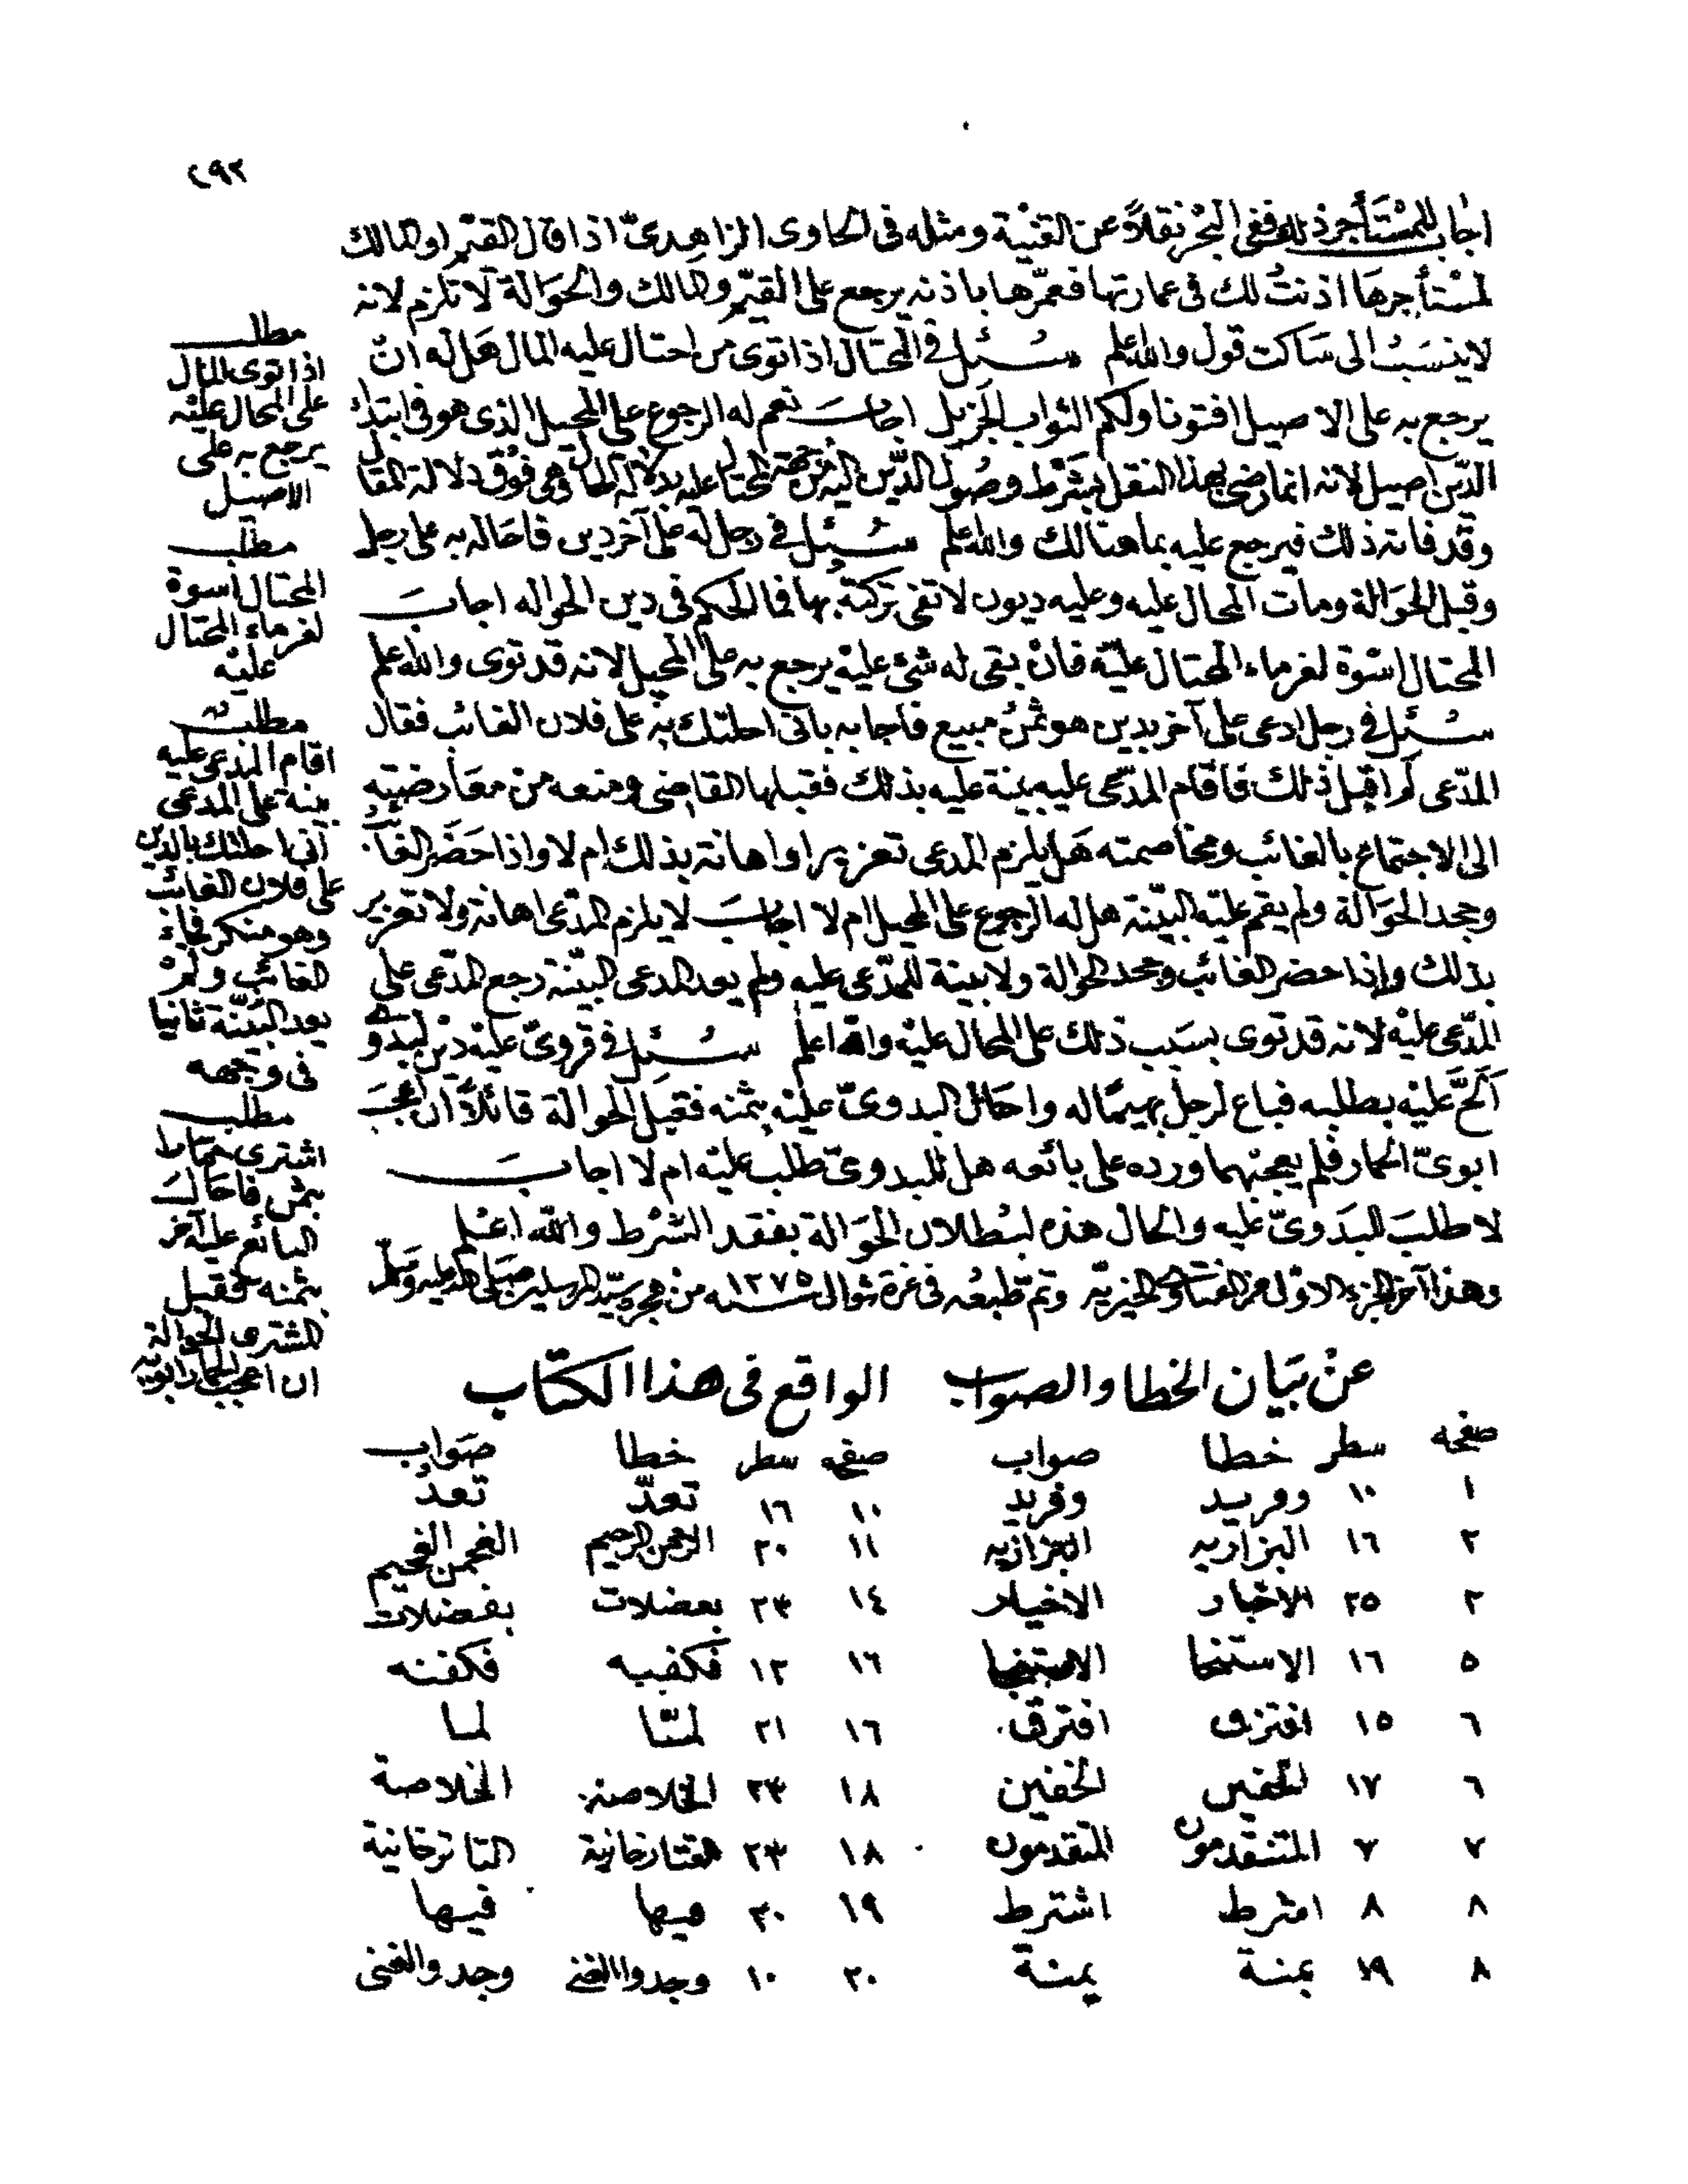 ٢٩٢
اجاب للمستأجر ذلك ففى البحر نقلاً عن القنية ومثله فى الحاوى الزاهدىّ اذا قال القيّم او المالك
لمستأجرها اذنتُ لك فى عمارتها فعمّرها باذنه يرجع على القيّم والمالك والحوَالة لا تلزم لانه
لا ينسَبُ الى سَاكت قول والله اعلم سُئِل فى المحتال اذا توى من احتال عليه المال هَل له انْ
يرجع به على الاصيل افتونا ولكم الثواب الجَزيل اجابَ نعم له الرجوع على المحيل الذى هو فى ابتداء
الدّين اصيل لانه انما رضى بهذا النقل بشَرْط وصُول الدّين اليْه من جهة المحتال عليه بدلالة الحال وهى فوْق دلالة المقال
وقد فاته ذلك فيرجع عليه بما هنالك والله اعلم سُئِل فى رجل له على آخر دين فاحَاله به على رجل
وقبل الحوَالة ومات المحال عليه وعليه ديون لا تفى تركتهُ بها فما الحكم فى دين الحواله اجابَ
المحتال اسْوة لغرماء المحتال عليْه فانْ بقى له شئ عليْه يرجع به على المحيل لانه قد توى والله اعلم
سُئِل فى رجل ادعى على آخر بدين هو ثمنُ مبيع فاجابه بانى احلتك به على فلان الغائب فقال
المدّعى لم اقبل ذلك فاقام المدّعى عليه بينة عليه بذلك فقبلها القاضى ومنعه من معَارضته
الى الاجتماع بالغائب ومخاصمته هَل يلزم المدعى تعزيرا واهانة بذلك ام لا واذا حَضَر الغائب
وجحد الحوَالة ولم يقم عليْه البيّنة هل له الرجوع على المحيل ام لا اجابَ لا يلزم المدّعى اهانة ولا تعزير
بذلك واذا حضر الغائب وجحد الحوالة ولا بينة للمدّعى عليه ولم يعد المدعى البيّنة رجع المدّعى على
المدّعى عليْه لانه قد توى بسَبب ذلك على المحال عليْه والله اعلم سُئِل فى قروىّ عليْه ديْن لبدوىّ
اَلَحَّ عَليْه بطلبه فباع لرجل بهيمًا له واحَال البدوىّ عليْه بثمنه فقبل الحوالة قائلاً ان اعجبَ
ابوىّ الحمار فلم يعجبهما ورده على بائعه هل للبدوىّ طلب عليْه ام لا اجابَ
لا طلبَ للبدَوىّ عليه والحال هذه لبُطلان الحوَالة بفقد الشرْط والله اعْلم
وهذا آخر الجزء الاوّل من الفتاوى الخيريّه وتمّ طبعُه فى غرة شوال سنه ١٢٧٥ من هجرة سيّد المرسلين صلى الله عليه وسلّم
مطلب
اذا توى المال
على المحال عليْه
يرجع به على
الاصيل
مطلب
المحتال اسوة
لغرماء المحتال
عليْه
مطلب
اقام المدعى عليه
بينة على المدعى
انى احلتك بالدين
على فلان الغائب
وهو منكر فجاء
الغائب ولمْ
يعد البيّنة ثانيا
فى وجهه
مطلب
اشترى حمارا
بثمن فاحَالَ
البائع عليه آخر
بثمنه فقبل
المشترى الحوالة
ان اعجب الحمار ابويه
عنْ بَيَان الخطا والصوَاب الواقع فى هذا الكتاب
صفحه سطر خطا صواب صفحه سطر خطا صَواب
١ ١٠ وورىد وفريد ١٠ ١٦ تعدّ تعدُ
٢ ١٦ البزاريه البزازيه ١١ ٢٠ الرحمن الرحيم الغحمن الغحيم
٢ ٢٥ الاخبار الاخيار ١٤ ٢٣ بعضلات بفضلات
٥ ١٦ الاستنحا الاستنجا ١٦ ١٢ فكفيه فكفنه
٦ ١٥ افتزق افترق ١٦ ٢١ لمنّا لما
٦ ١٧ لخفين الخفين ١٨ ٢٣ الخلاصنة الخلاصة
٧ ٧ المتنقدمون المتقدمون ١٨ ٢٣ التتارخانية التاترخانية
٨ ٨ اشرط اشترط ١٩ ٣٠ ميها فيها
٨ ١٩ بمنة يمنة ٢٠ ١٠ وجدوا الغنى وجد والغنى